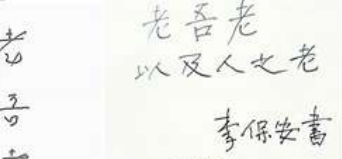 老吾老
以及人之老
李保安書